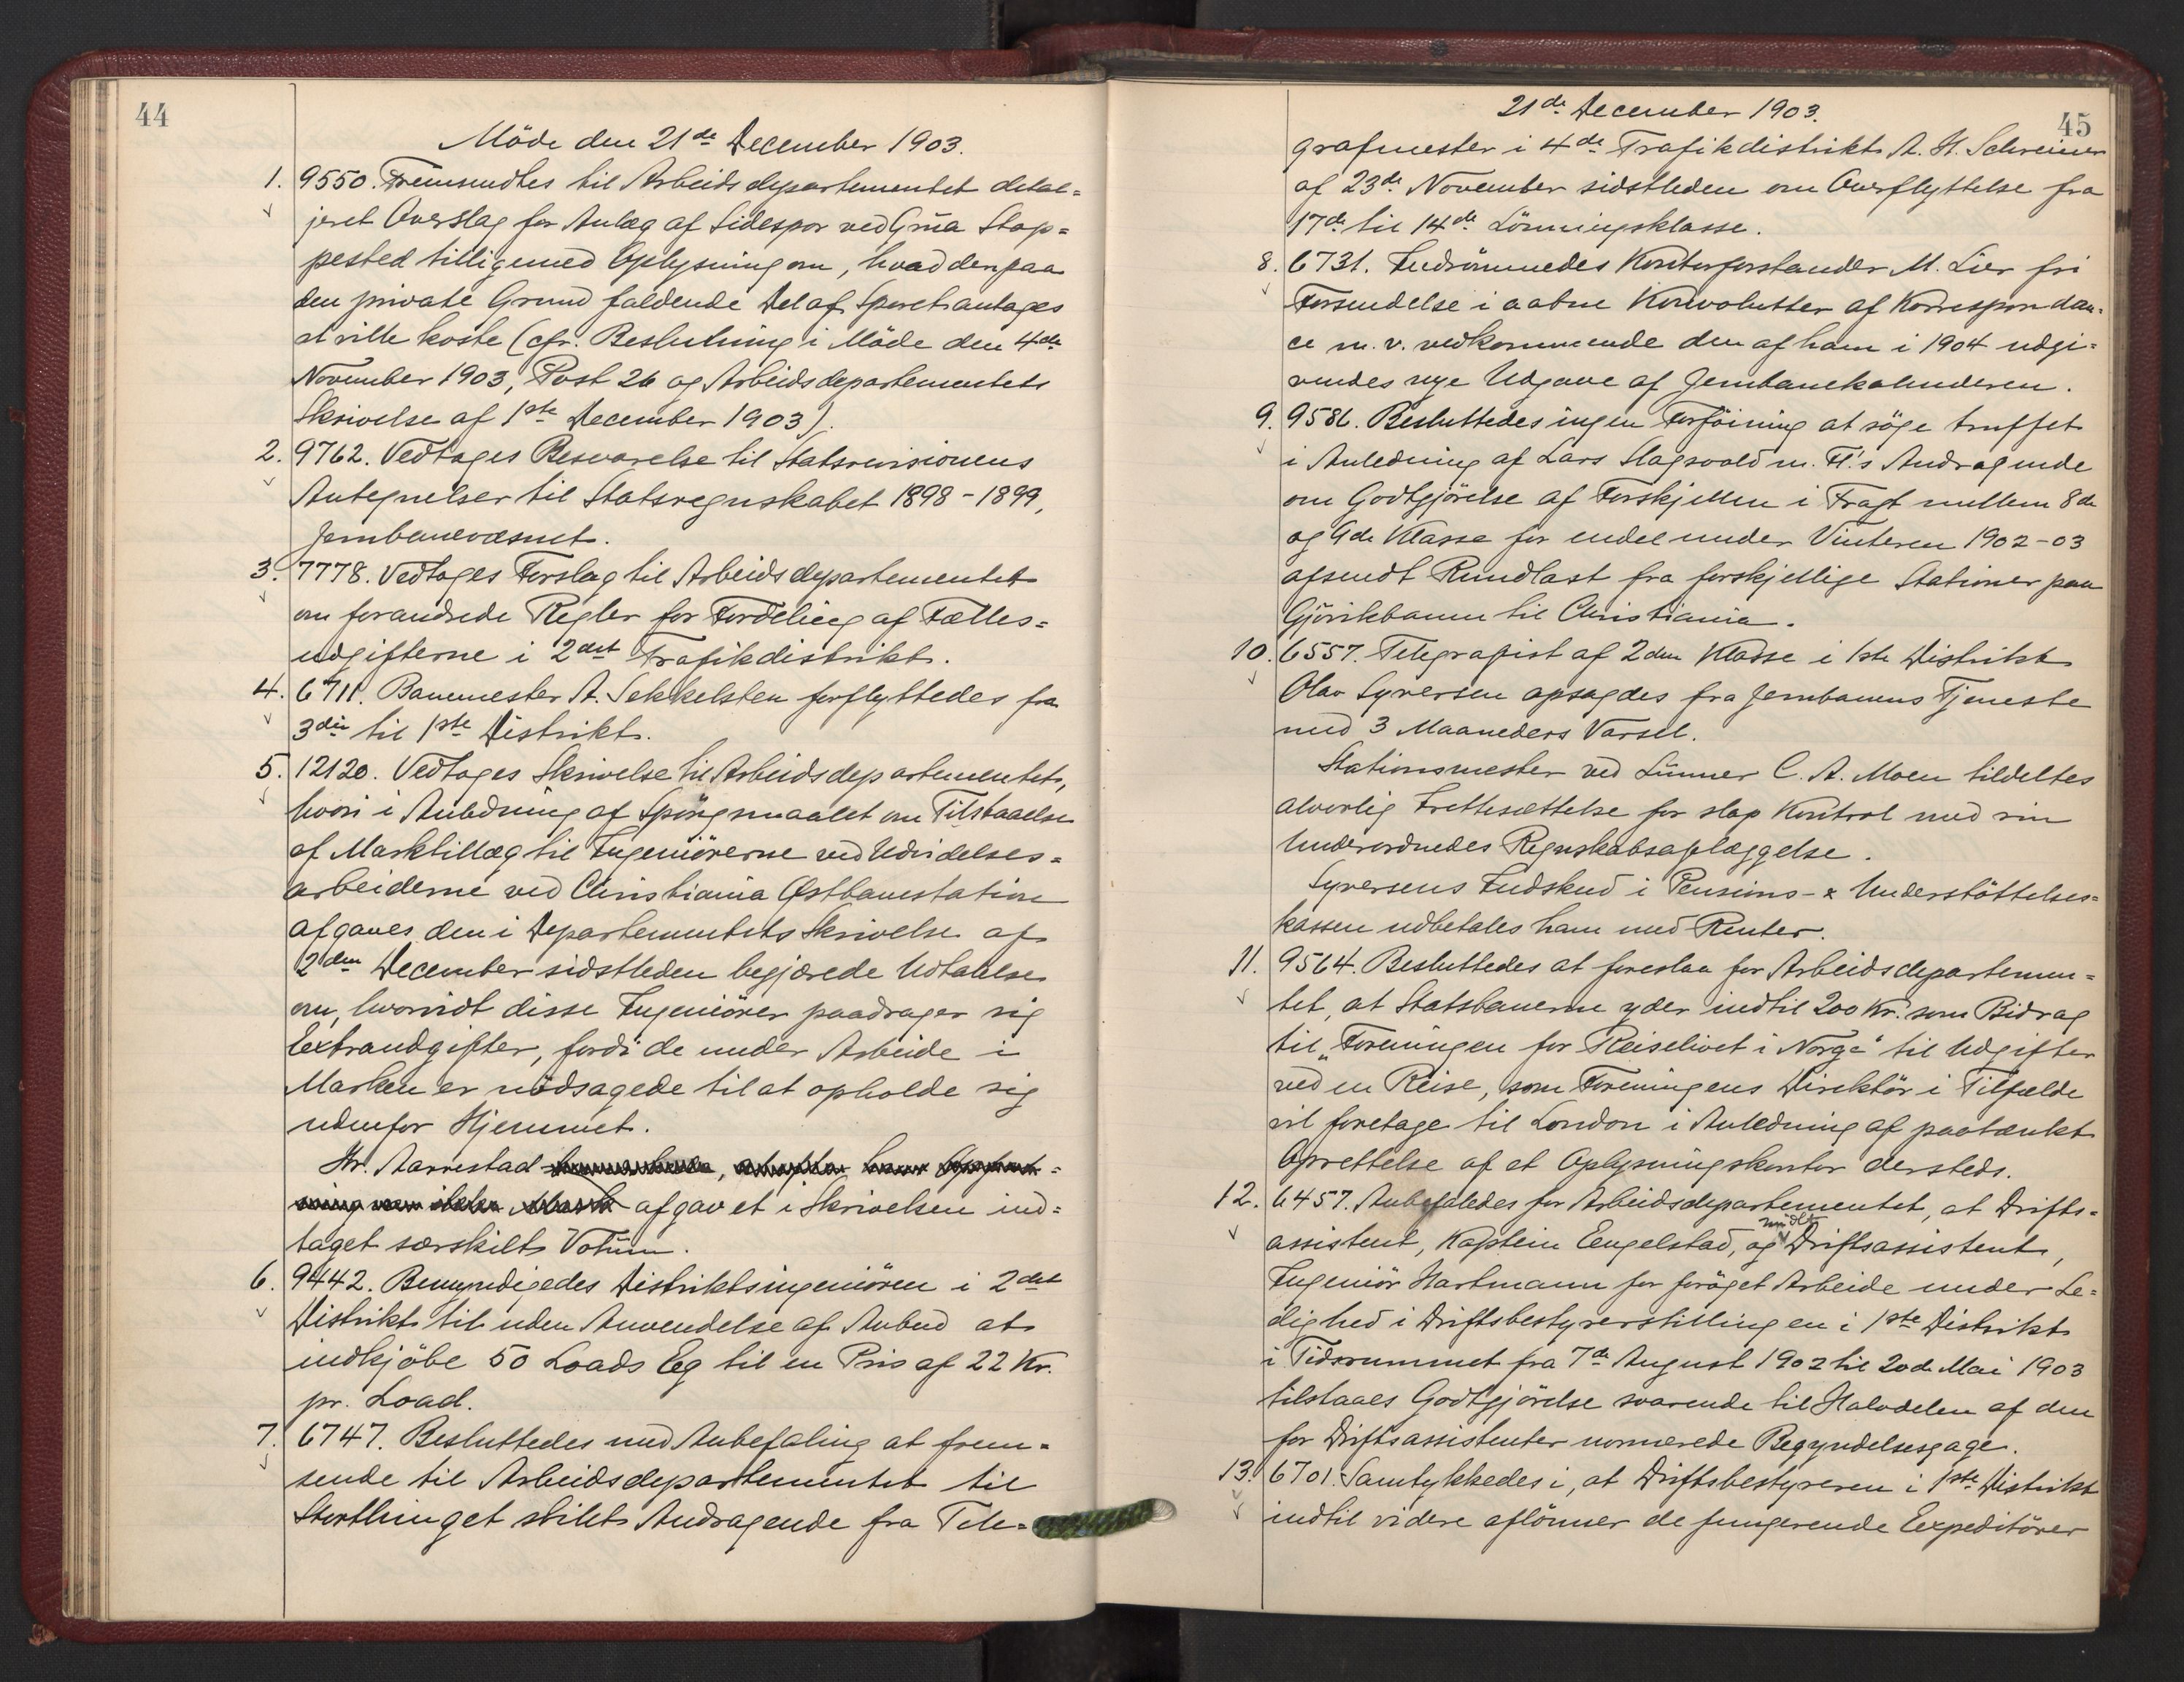 44
Möde den 21de December 1903.
1. 9550. Fremsendtes til Arbeidsdepartementet detal=
jeret Overslag for Anlæg af Sidespor ved Grua Stop=
pested tilligemed Oplysning om, hvad den paa
den private Grund faldende Del af Sporet antages
at ville koste (cfr. Beslutning i Möde den 4de
November 1903, Post 26 og Arbeidsdepartementets
Skrivelse af 1ste December 1903).
2. 9762. Vedtoges Besvarelse til Statsrevisionens
Antegnelser til Statsregnskabet 1898-1899,
Jernbanevæsnet.
3. 7778. Vedtoges Forslag til Arbeidsdepartementet
om forandrede Regler for Fordeling af Fælles=
udgifterne i 2det Trafikdistrikt.
4. 6711. Banemester A. Sekkelsten forflyttedes fra
3die til 1ste Distrikt.
5. 12120. Vedtoges Skrivelse til Arbeidsdepartementet,
hvori i Anledning af Spörgsmaalet om Tilstaaelse
af Marktillæg til Ingeniörerne ved Udvidelses=
arbeiderne ved Christiania Østbanestation
afgaves den i Departementets Skrivelse af
2den December sidstleden begjærede Udtalelse
om, hvorvidt disse Ingeniörer paadrager sig
Extraudgifter, fordi de under Arbeide i
Marken er nödsagede til at opholde sig
udenfor Hjemmet.
Hr. Aarrestad
afgav et i Skrivelsen ind=
taget særskilt Votum.
6. 9442. Bemyndigedes Distriktsingeniören i 2det
Distrikt til uden Anvendelse af Anbud at
indkjöbe 50 Loads Eg til en Pris af 22 Kr.
pr. Load.
7. 6747. Besluttedes med Anbefaling at frem=
sende til Arbeidsdepartementet til
Storthinget stilet Andragende fra Tele=
45
21de December 1903.
grafmester i 4de Trafikdistrikt A. H. Schreiner
af 23de November sidstleden om Overflyttelse fra
17de til 14de Lönningsklasse.
8. 6731. Indrömmedes Kontorforstander M. Lier fri
Forsendelse i aabne Konvolutter af Korrespondan=
ce m. v. vedkommende den af ham i 1904 udgi=
vendes nye Udgave af Jernbanekalenderen.
9. 9586. Besluttedes ingen Forföining at söge truffet
i Anledning af Lars Slagsvold m. Fl.'s Andragende
om Godtgjörelse af Forskjellen i Fragt mellem 8de
og 9de Klasse for endel under Vinteren 1902-03
afsendt Rundlast fra forskjellige Stationer paa
Gjövikbanen til Christiania.
10. 6557. Telegrafist af 2den Klasse i 1ste Distrikt
Olav Syversen opsagdes fra Jernbanens Tjeneste
med 3 Maaneders Varsel.
Stationsmester ved Lunner C. A. Moen tildeltes
alvorlig Irettesættelse for slap Kontrol med sin
Underordnedes Regnskabsaflæggelse.
Syversens Indskud i Pensions- & Understöttelses=
kassen udbetales ham med Renter.
11. 9564. Besluttedes at foreslaa for Arbeidsdepartemen=
tet, at Statsbanerne yder indtil 200 Kr. som Bidrag
til „Foreningen for Reiselivet i Norge" til Udgifter
ved en Reise, som Foreningens Direktör i Tilfælde
vil foretage til London i Anledning af paatænkt
Oprettelse af et Oplysningskontor dersteds.
12. 6457. Anbefaledes for Arbeidsdepartementet, at Drifts=
assistent, Kaptein Eengelstad, og midlt Driftsassistent,
Ingeniör Hartmann for foröget Arbeide under Le=
dighed i Driftsbestyrerstillingen i 1ste Distrikt
i Tidsrummet fra 7de August 1902 til 20de Mai 1903
tilstaaes Godtgjörelse svarende til Halvdelen af den
for Driftsassistenter normerede Begyndelsesgage.
13. 6701. Samtykkedes i, at Driftsbestyreren i 1ste Distrikt
indtil videre aflönner de fungerende Expeditörer